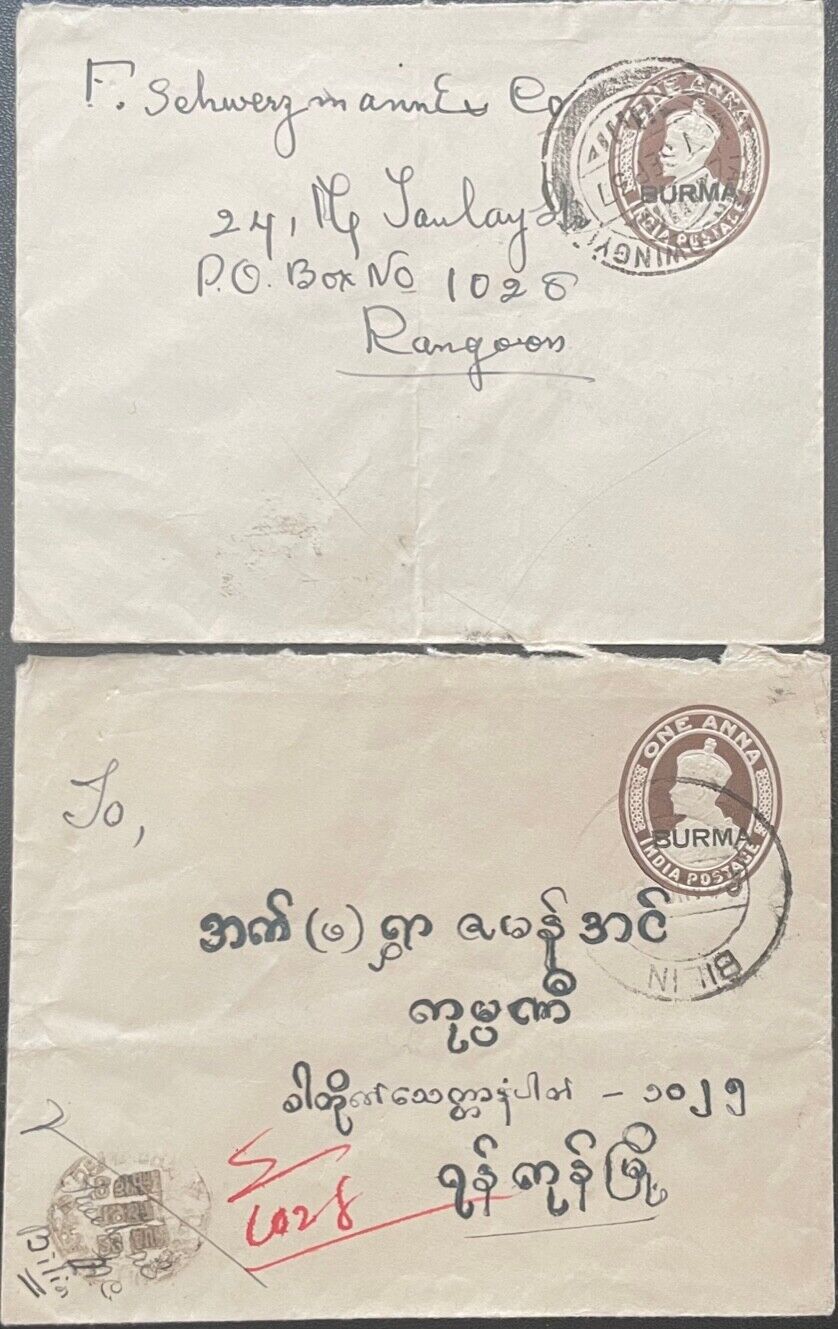 F. Schwerzmann & Co
24, Mg Taulay St
P.O. Box No 1028
Rangoon
ONE ANNA
BURMA
INDIA POSTAGE
To,
ONE ANNA
BURMA
INDIA POSTAGE
BILIN
အက် (ဖ) ရွှာ ဇမန် အင်
ကုမ္ပဏီ
ခါတိုက်သေတ္တာနံပါတ် - ၁၀၂၅
ရန်ကုန်မြို့
1028
Bilin